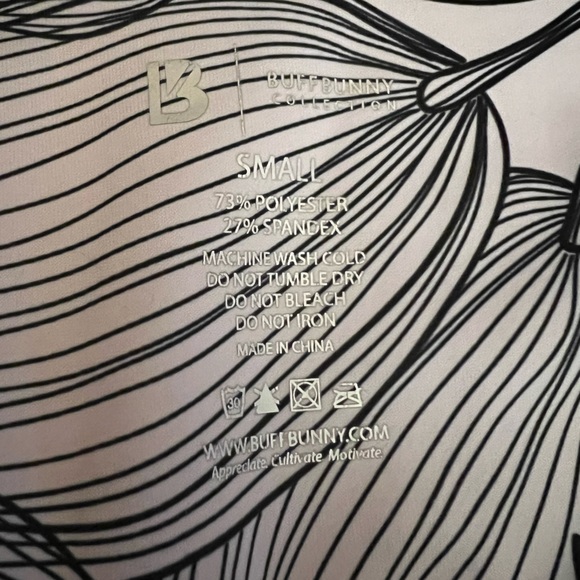 B
BUFFBUNNY
COLLECTION
SMALL
73% POLYESTER
27% SPANDEX
MACHINE WASH COLD
DO NOT TUMBLE DRY
DO NOT BLEACH
DO NOT IRON
MADE IN CHINA
30
WWW.BUFFBUNNY.COM
Appreciate. Cultivate. Motivate.